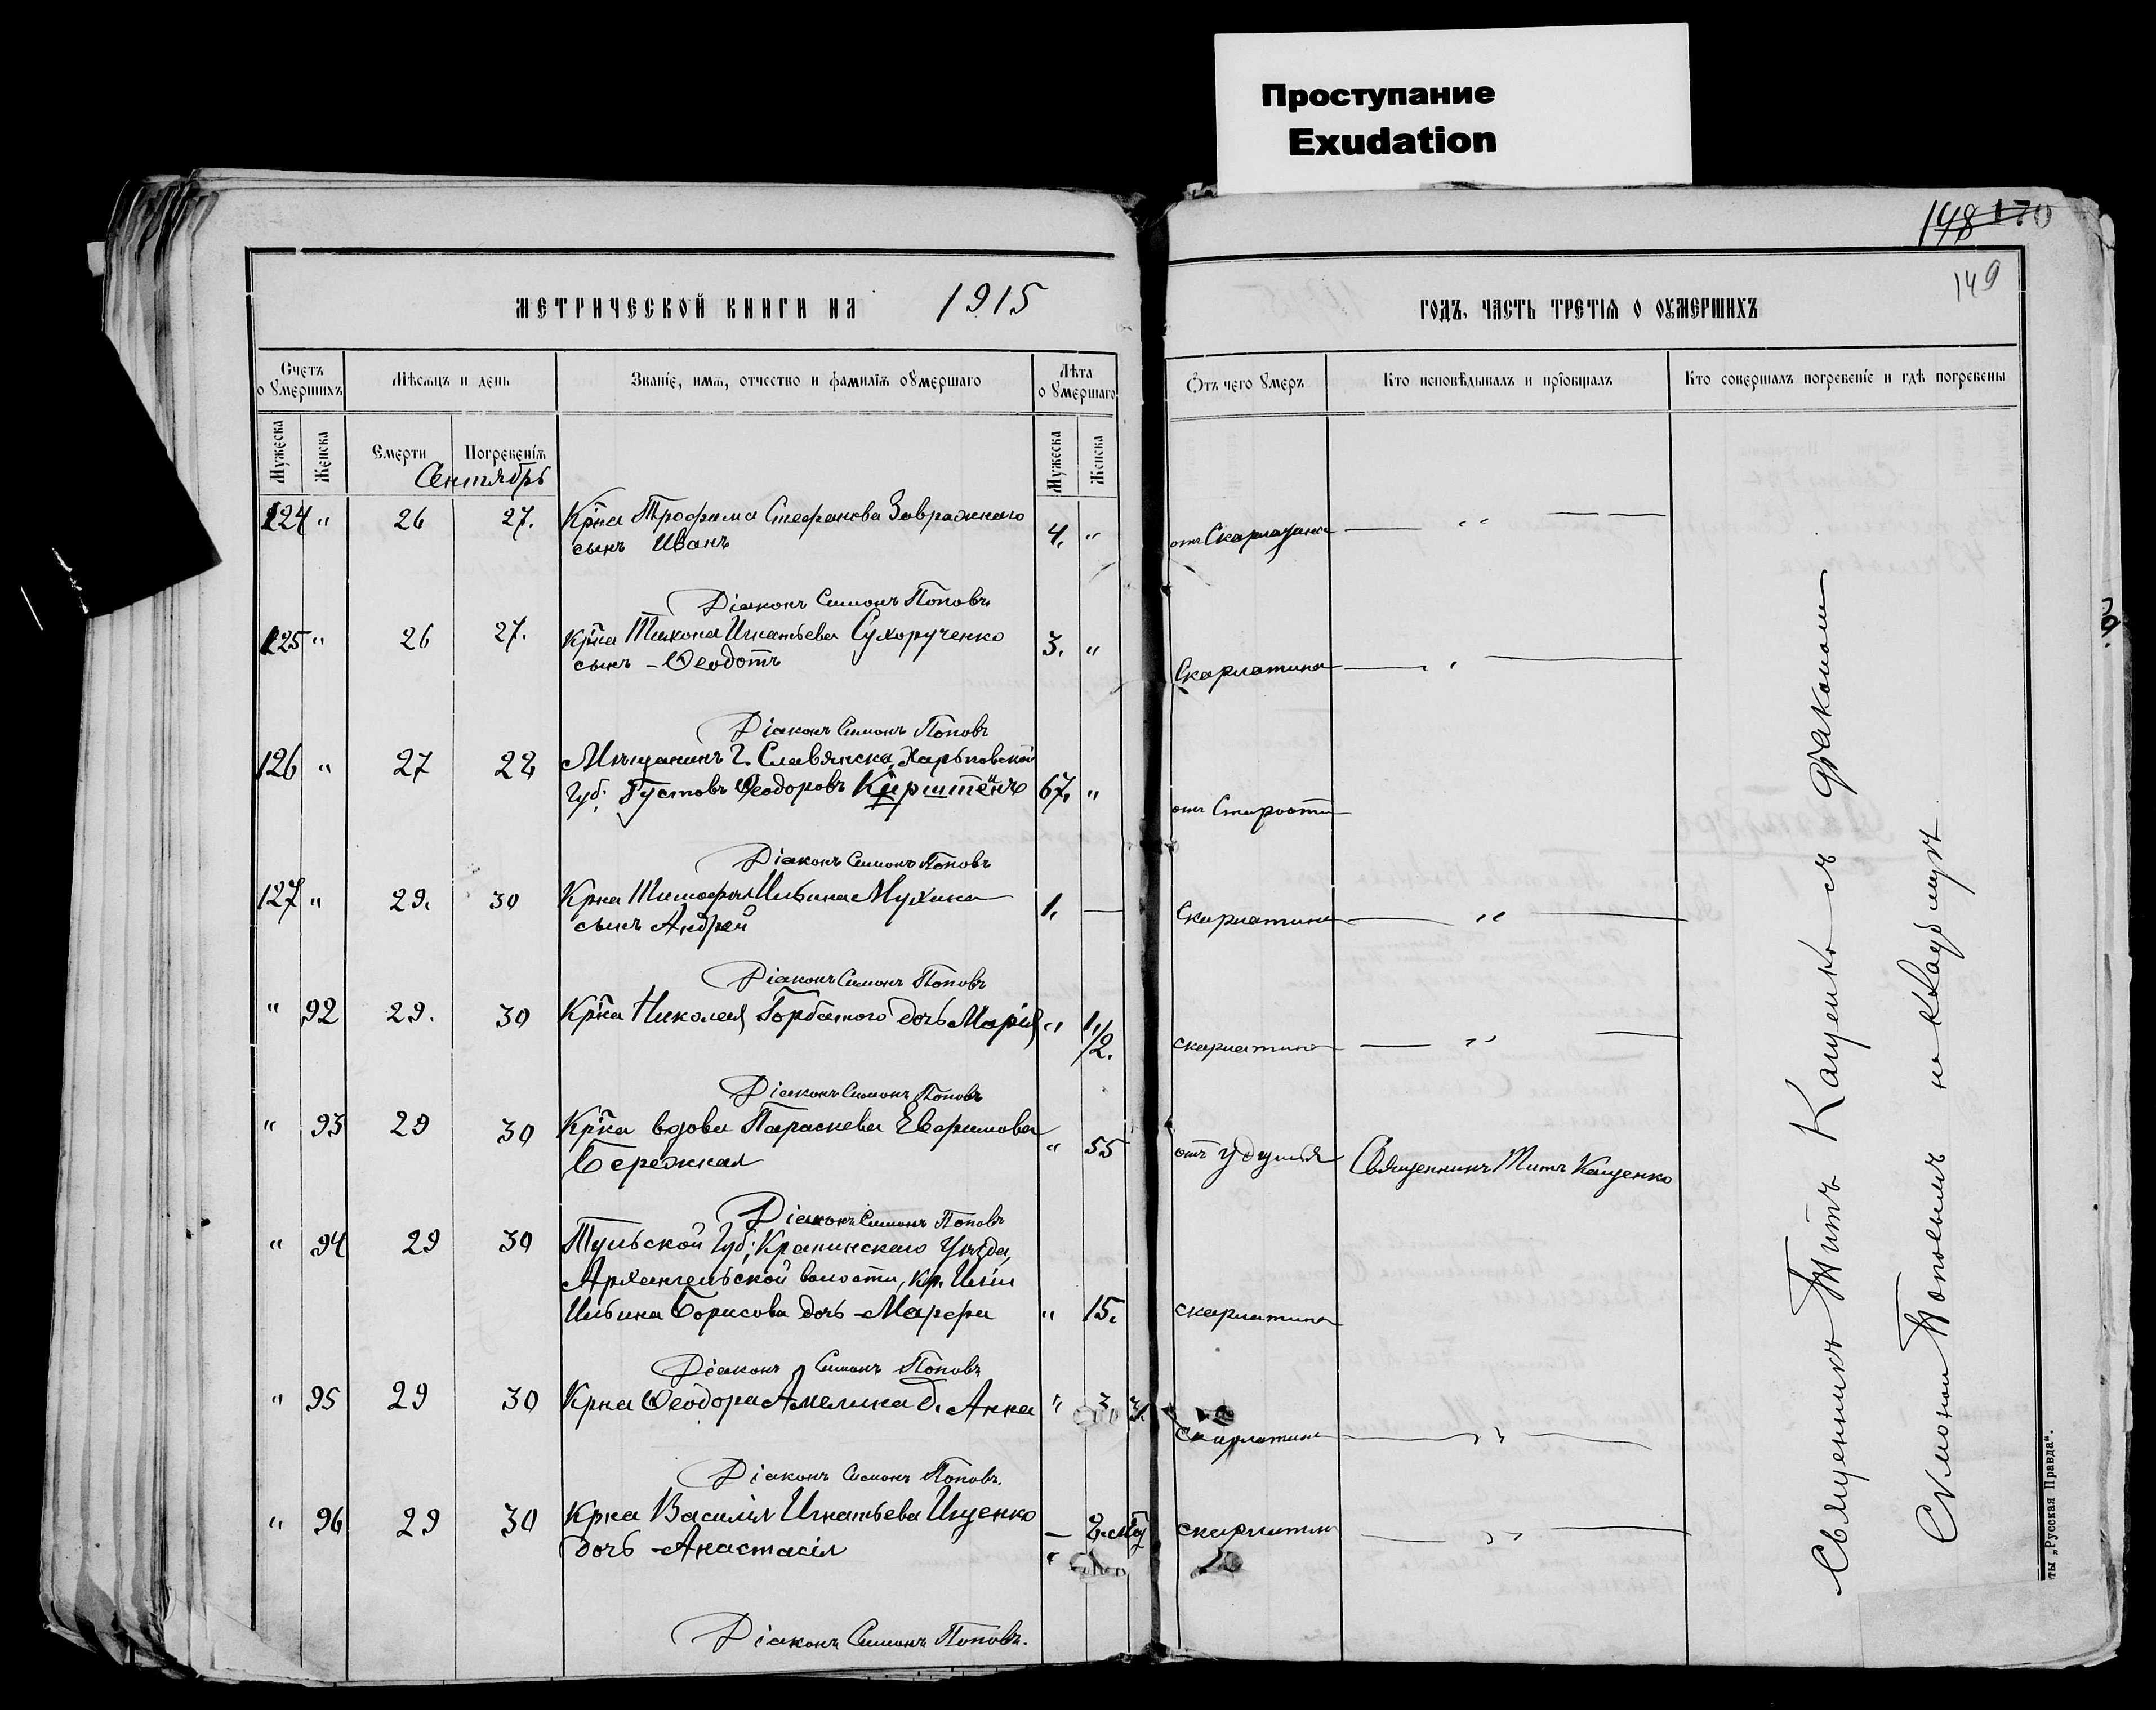 Проступание
Exudation
148 170
149
МЕТРИЧЕСКОЙ КНИГИ НА 1915
ГОДЪ, ЧАСТЬ ТРЕТІЯ О ОУМЕРШИХЪ
Счетъ оумершихъ
Мѣсяцъ и день
Званіе, имя, отчество и фамилія оумершаго
Лѣта оумершаго
Отъ чего умеръ
Кто исповѣдывалъ и пріобщалъ
Кто совершалъ погребеніе и гдѣ погребены
Мужеска
Женска
Смерти
Погребенія
Мужеска
Женска
Сентябрь
124 " 26 27. Крна Трофима Стефанова Завражнаго 4. " отъ Скарлатина — " — —
сынъ Иванъ
Діаконъ Симонъ Поповъ
125 " 26 27. Крна Тихона Игнатьева Сухорученко 3. " Скарлатина
сынъ - Ѳеодотъ
Діаконъ Симонъ Поповъ
126 " 27 28 Мѣщанинъ г. Славянска, Харьковской
Губ. Густавъ Ѳеодоровъ Кирштейнъ 67. " отъ Старости
Діаконъ Симонъ Поповъ
127 " 29. 30 Крна Тимофея Ильина Мухина 1. — Скарлатина — " —
сынъ Андрей
Діаконъ Симонъ Поповъ
" 92 29. 30 Крна Николая Горбатого дочь Марія " 1 1/2. скарлатина — " —
Діаконъ Симонъ Поповъ
" 93 29 30 Крна вдова Параскева Евфимова " 55 отъ удушья Священникъ Титъ Кащенко
Бережная
Діаконъ Симонъ Поповъ
" 94 29 30 Тульской Губ; Крапивскаго Уѣзда,
Архангельской волости, кр. Иліи
Ильина Борисова дочь - Марфа " 15. скарлатина
Діаконъ Симонъ Поповъ
" 95 29 30 Крна Ѳеодора Амелина д. Анна " 3 Скарлатина — " —
Діаконъ Симонъ Поповъ.
" 96 29 30 Крна Василія Игнатьева Ищенко — 2 скарлатина — " —
дочь - Анастасія
Діаконъ Симонъ Поповъ.
Священникъ Титъ Кащенко съ діакономъ
Симономъ Поповымъ на кладбищѣ
ты „Русская Правда“.